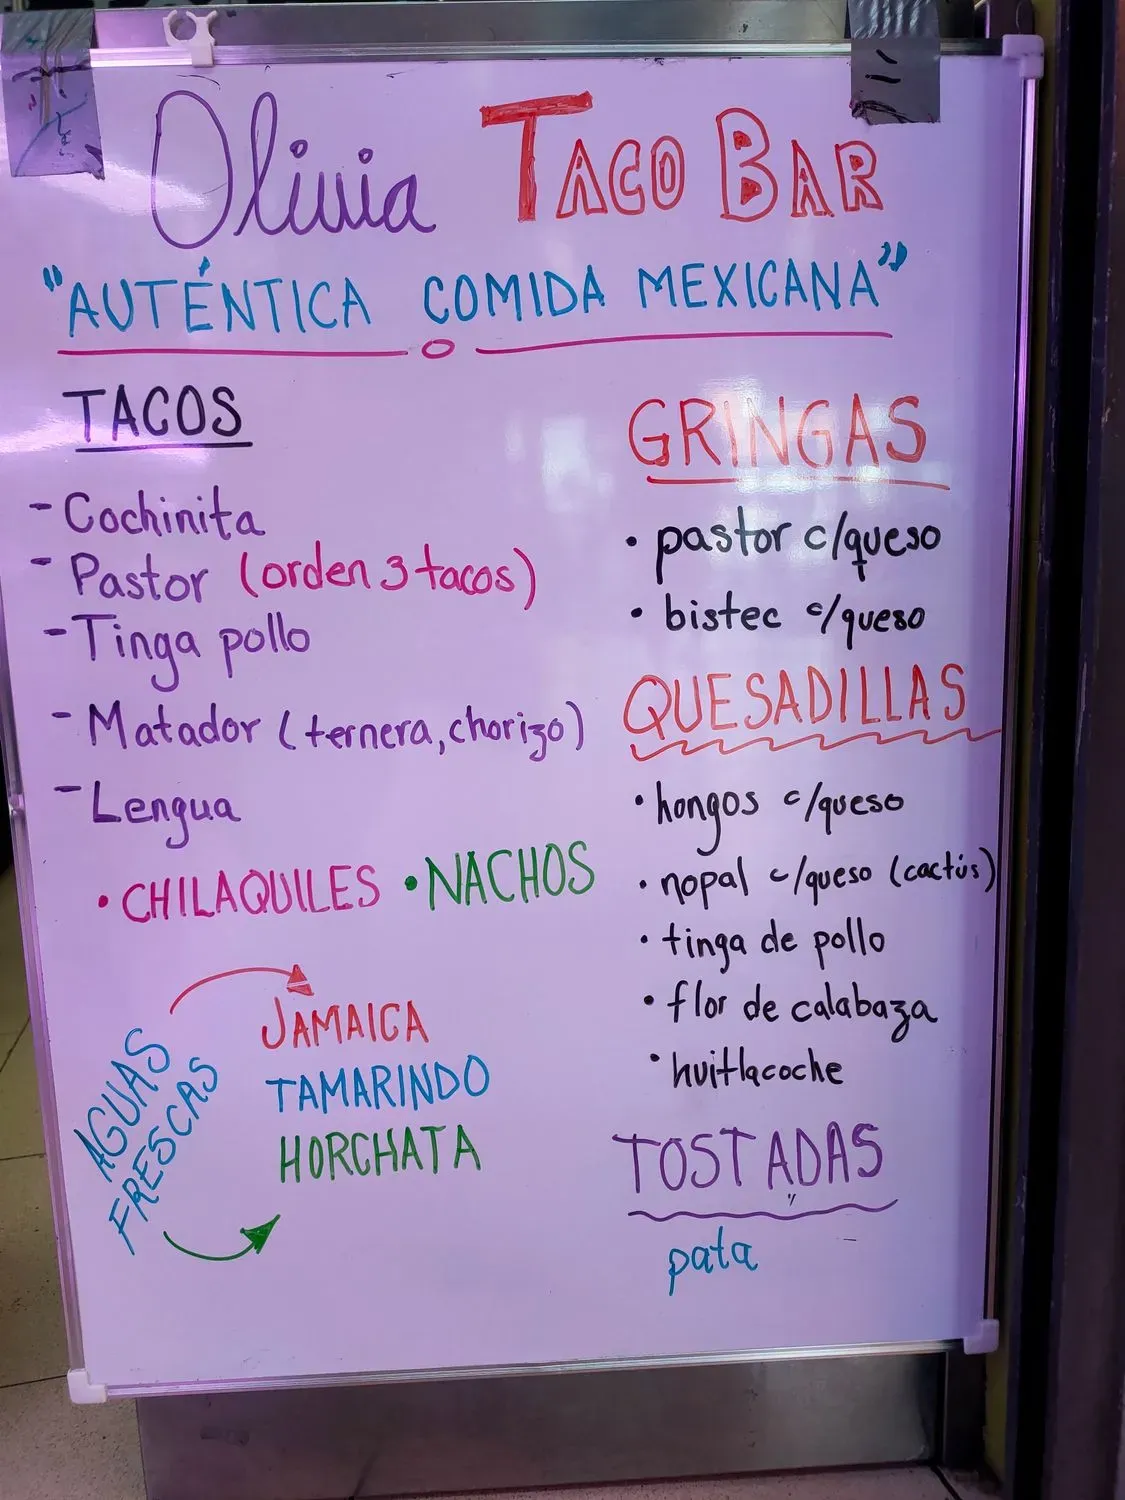 Olivia TACO BAR
"AUTÉNTICA COMIDA MEXICANA"
TACOS
- Cochinita
- Pastor (orden 3 tacos)
- Tinga pollo
- Matador (ternera, chorizo)
- Lengua
• CHILAQUILES • NACHOS
AGUAS FRESCAS
JAMAICA
TAMARINDO
HORCHATA
GRINGAS
• pastor c/queso
• bistec c/queso
QUESADILLAS
• hongos c/queso
• nopal c/queso (cactús)
• tinga de pollo
• flor de calabaza
• huitlacoche
TOSTADAS
pata